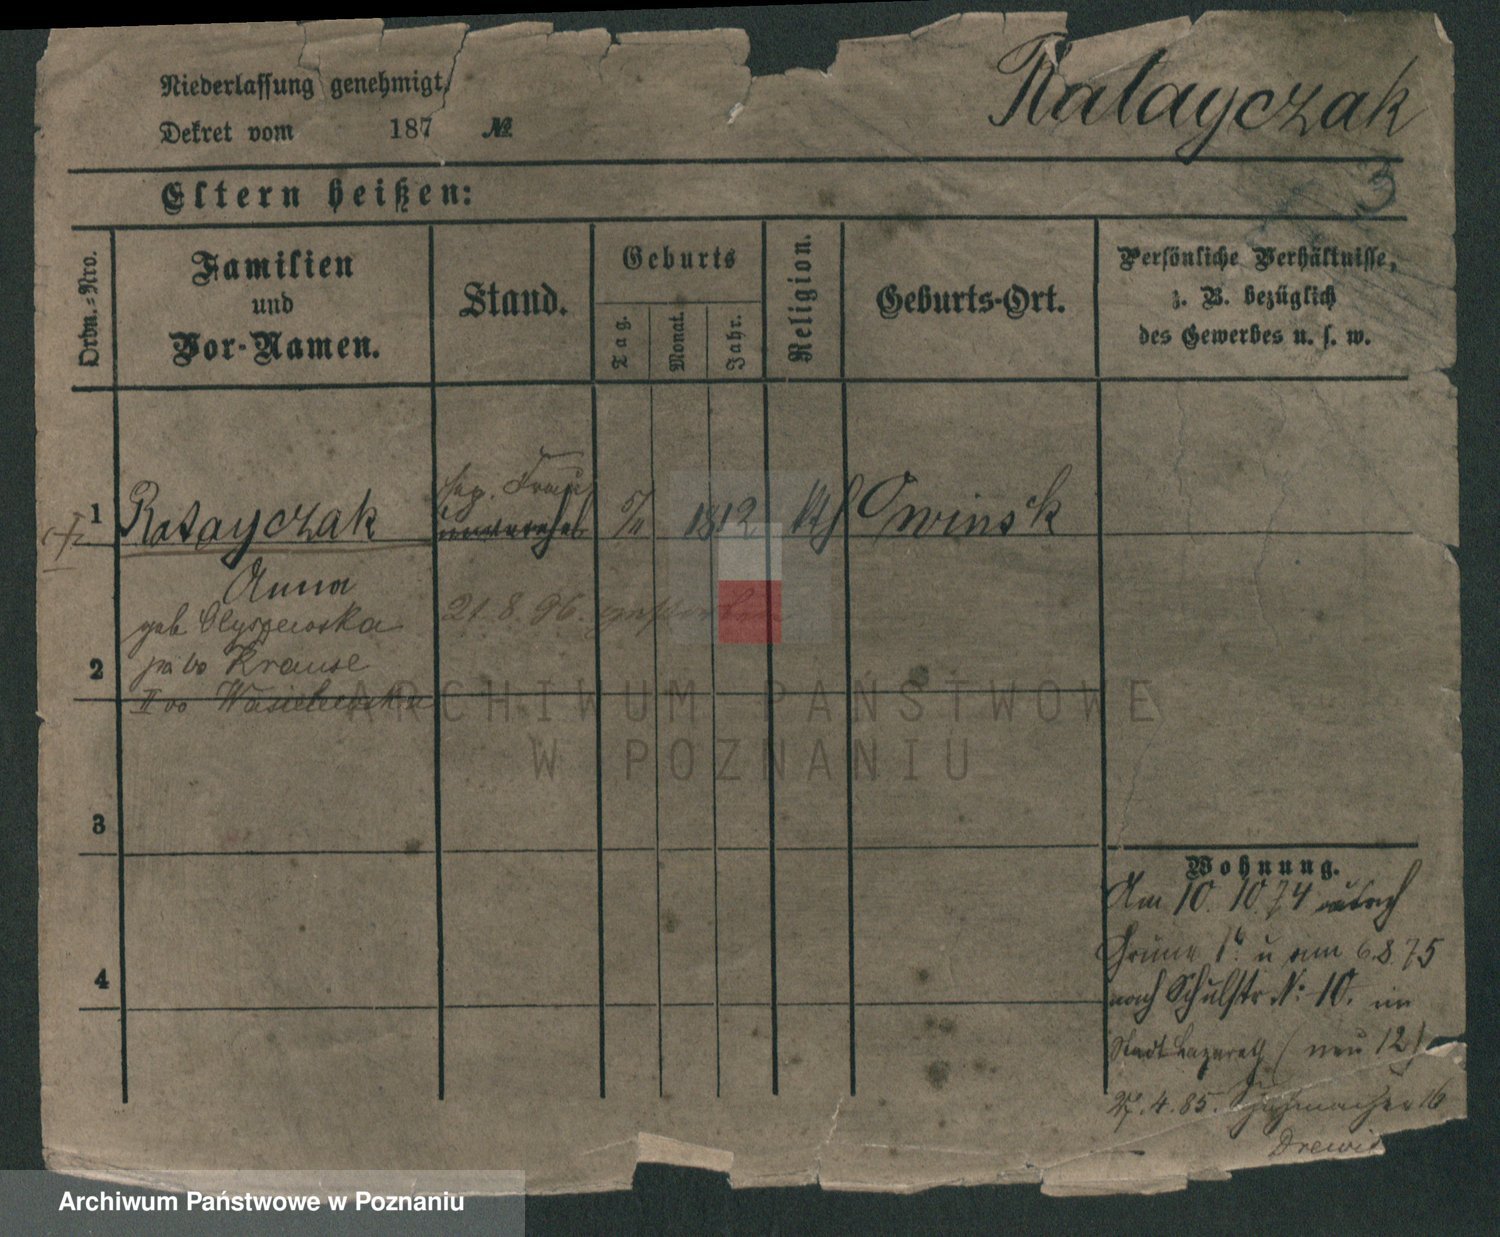 Niederlassung genehmigt,
Dekret vom 187 №
Ratayczak
3
Eltern heißen:
Ordn.-Nro.
Familien
und
Vor-Namen.
Stand.
Geburts
Tag.
Monat.
Jahr.
Religion.
Geburts-Ort.
Persönliche Verhältnisse,
z. B. bezüglich
des Gewerbes u. s. w.
1 Ratayczak 1812 Kth Owinsk
Anna
21. 8. 96.
geb Olyszewska
2 Krause
II vo Wasielewska
3
4
Wohnung.
Am 10. 10. 74 nach
Grüne 1 u am 6.8.75
nach Schulstr. N: 10. im
Stadt Lazareth (neu 12)
27. 4. 85. 16
ARCHIWUM PAŃSTWOWE
W POZNANIU
Archiwum Państwowe w Poznaniu